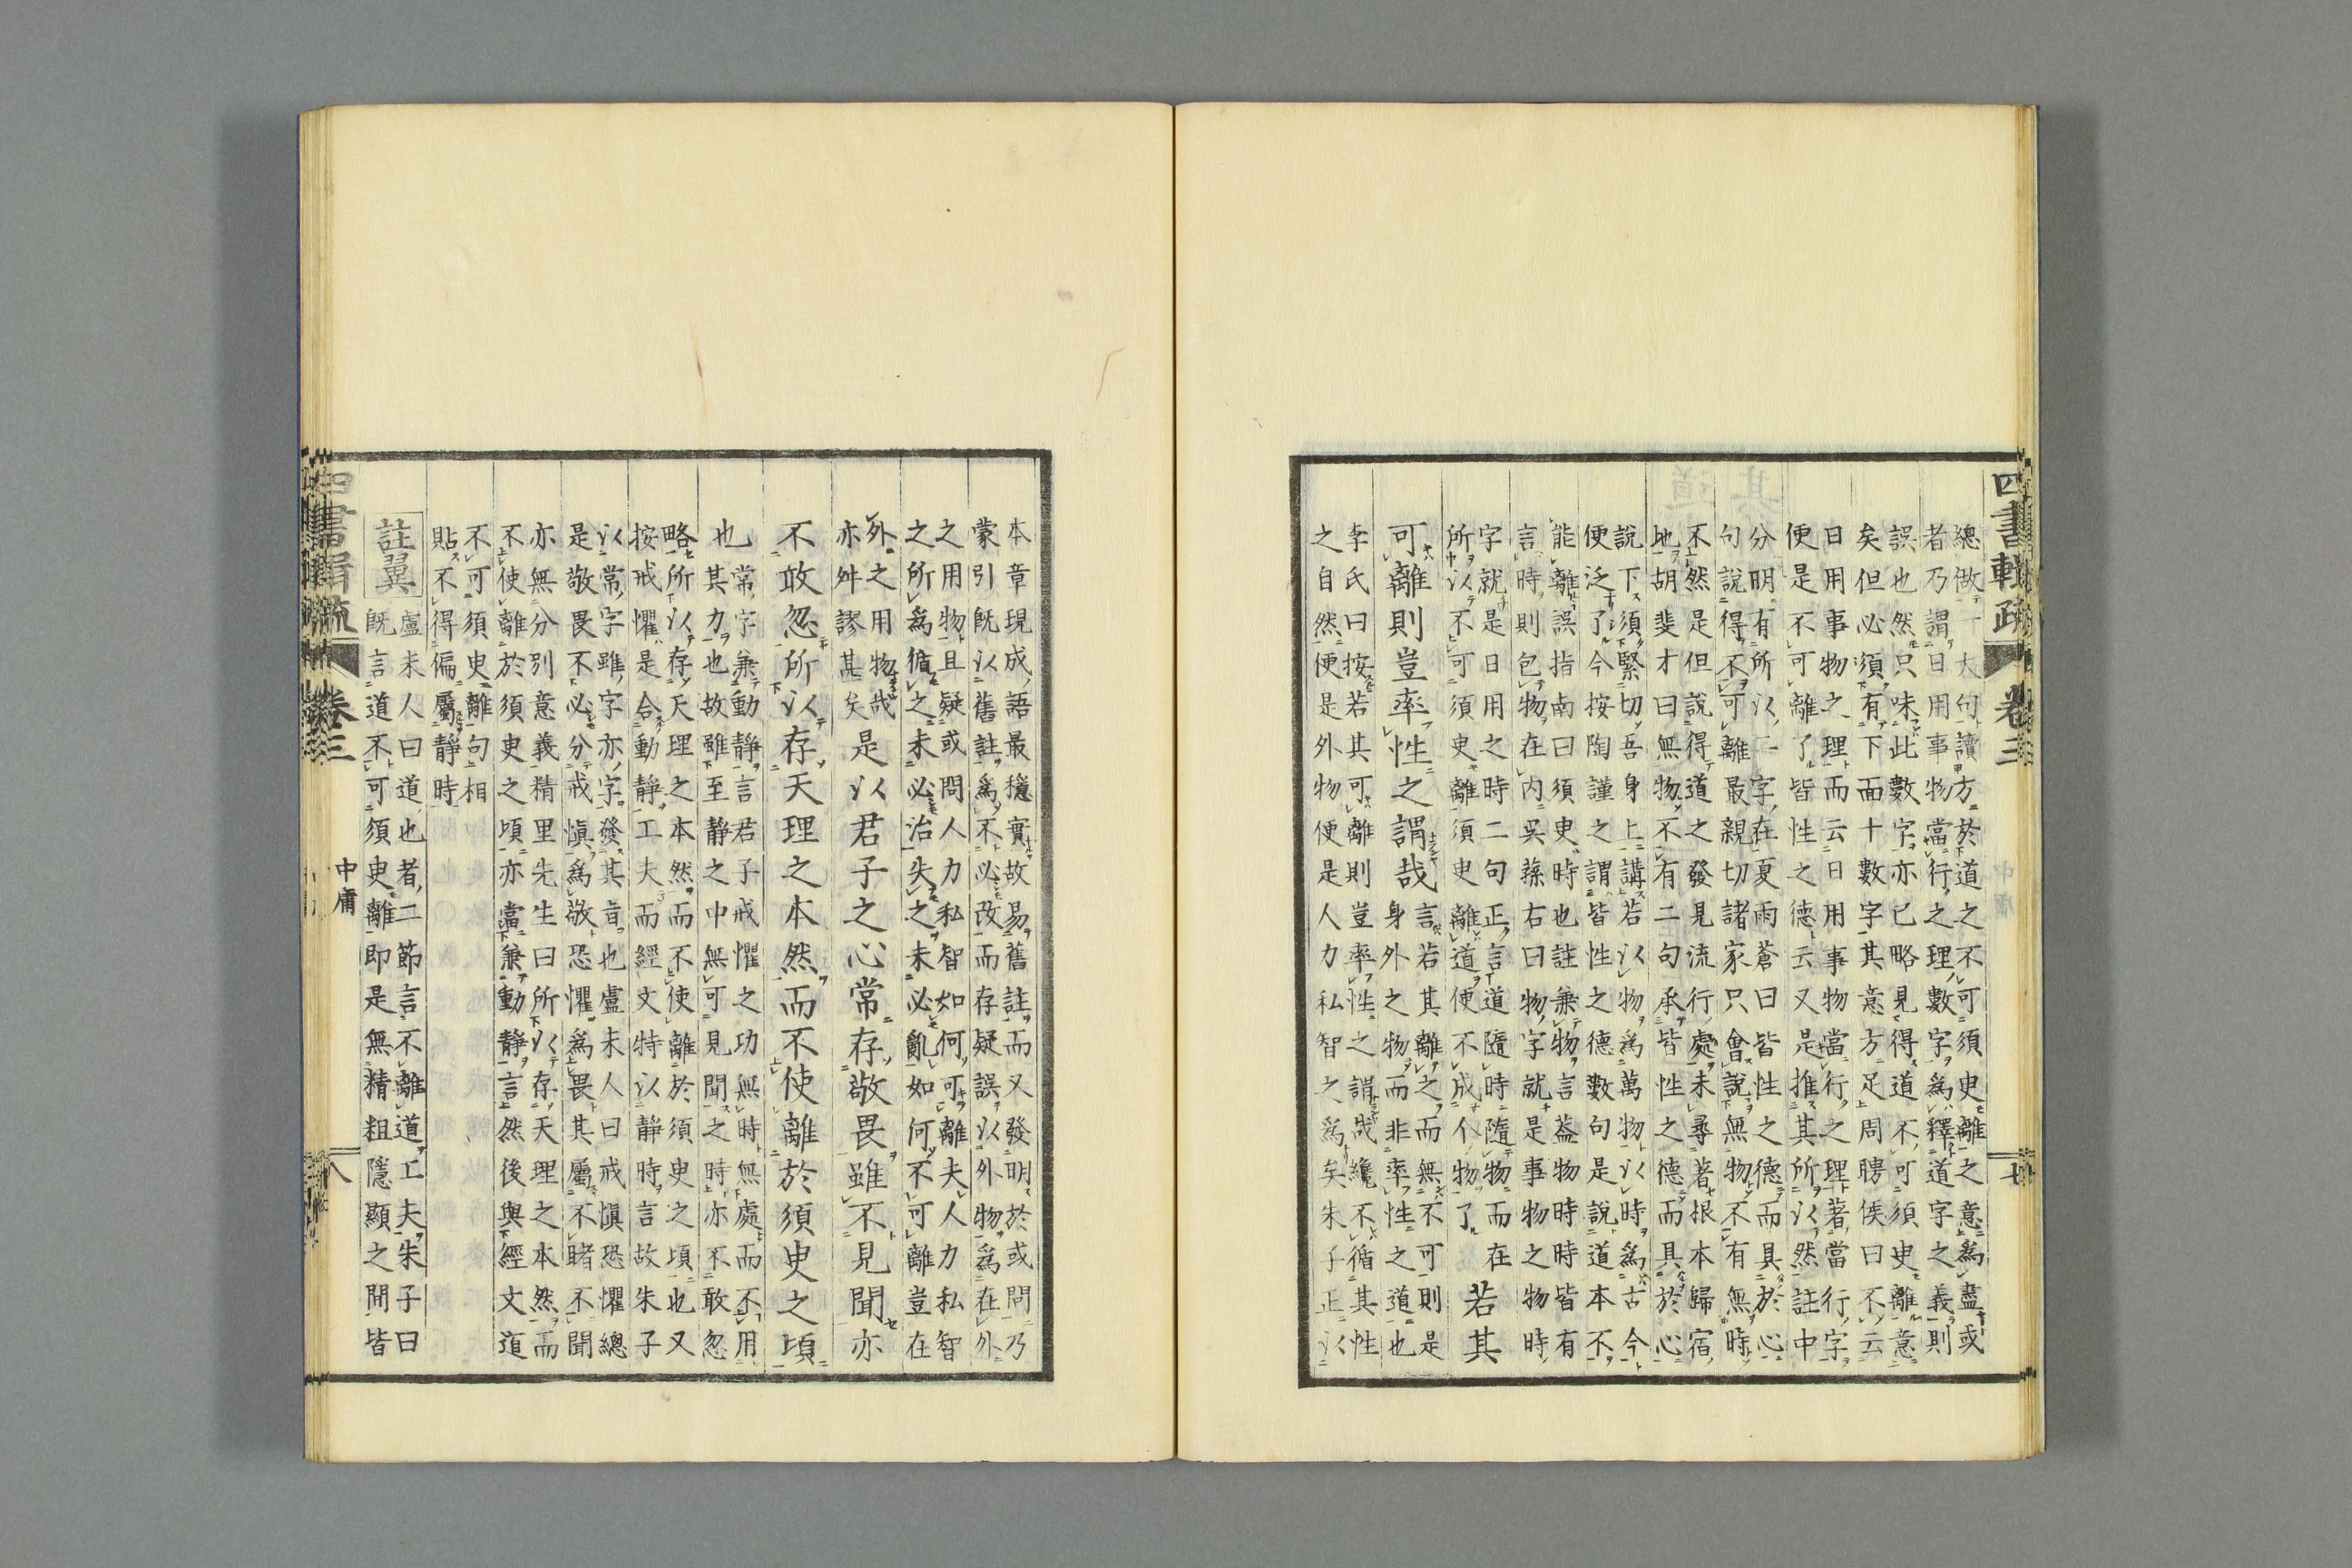 四書輯疏 卷三 七
總做一大句讀方於道之不可須臾離之意爲盡或
者乃謂日用事物當行之理數字爲釋道字之義則
誤也然只味此數字亦已略見得道不可須臾離意
矣但必須有下面十數字其意方足周聘侯曰不云
日用事物之理而云日用事物當行之理著當行字
便是不可離了皆性之德云又是推其所以然註中
分明有所以二字在夏雨蒼曰皆性之德而具於心
句說得不可離最親切諸家只會說無物不有無時
不然是但說得道之發見流行處未尋著根本歸宿
地胡斐才曰無物不有二句承皆性之德而具於心
說下須緊切吾身上講若以物爲萬物以時爲古今
便泛了今按陶謹之謂皆性之德數句是說道本不
能離誤指南曰須臾時也註兼物言蓋物時時皆有
言時則包物在內吳蓀右曰物字就是事物之物時
字就是日用之時二句正言道隨時隨物而在
所以不可須臾離須臾離道便不成个物了
若其
可離則豈率性之謂哉
言若其離之而無不可則是
身外之物而非率性之道也
李氏曰按若其可離則豈率性之謂哉纔不循其性
之自然便是外物便是人力私智之爲矣朱子正以
本章現成語最穩實故易舊註而又發明於或問乃
蒙引既以舊註爲不必改而存疑誤以外物爲在外
之用物且疑或問人力私智如何可離夫人力私智
之所爲循之未必治失之未必亂如何不可離豈在
外之用物哉
亦舛謬甚矣
是以君子之心常存敬畏雖不見聞亦
不敢忽所以存天理之本然而不使離於須臾之頃
也
常字兼動靜言君子戒懼之功無時無處而不用
其力也故雖至靜之中無可見聞之時亦不敢忽
略所以存天理之本然而不使離於須臾之頃也又
按戒懼是合動靜工夫而經文特以靜時言故朱子
以常字雖字亦字發其旨也盧未人曰戒愼恐懼總
是敬畏不必分戒愼爲敬恐懼爲畏其屬不睹不聞
亦無分別意義精里先生曰所以存天理之本然而
不使離於須臾之頃亦當兼動靜言然後與經文道
不可須臾離句相
貼不得偏屬靜時
註翼
盧未人曰道也者二節言不離道工夫朱子曰
既言道不可須臾離即是無精粗隱顯之間皆
四書輯疏 卷三 中庸 八